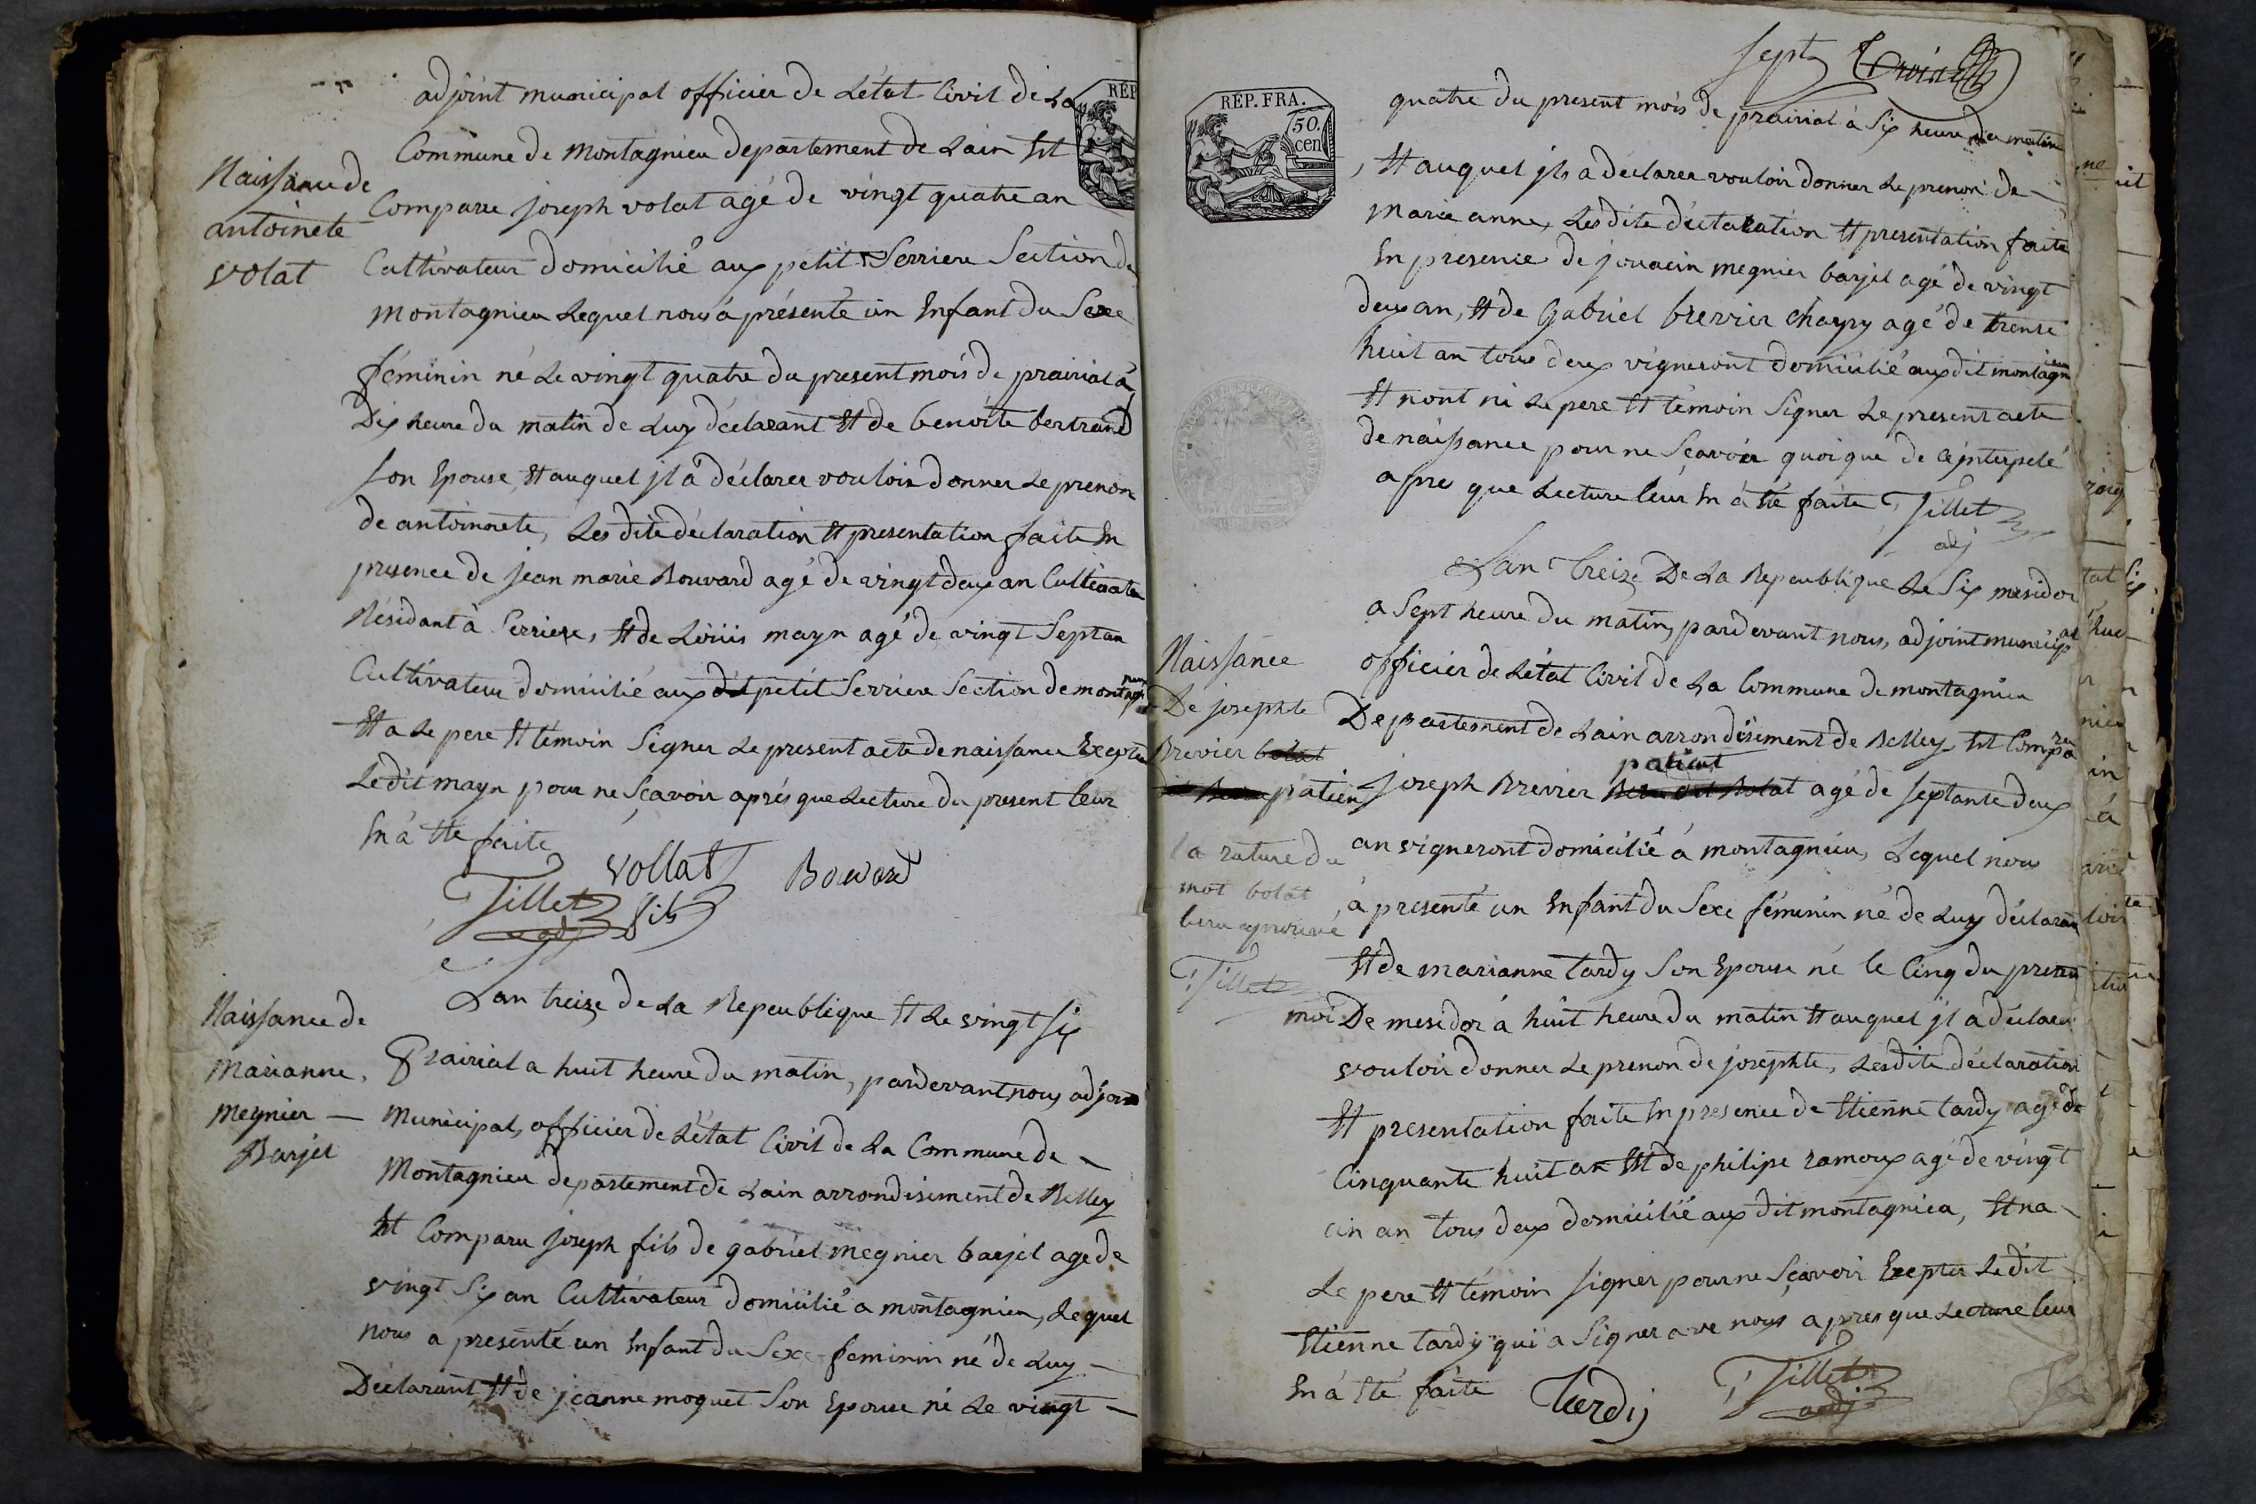 adjoint municipal officier de L'état Civil de La
Commune de montagnieu departement de Lain Et
Naissance de
antoinete
volat
Comparu joseph volat agé de vingt quatre an
Cultivateur domicilié aux petit Serriere Section de
montagnieu Lequel nous á présenté un Enfant du Sexe
féminin né Le vingt quatre du present mois de prairial á
Dix heure du matin de Luy déclarant Et de benoite bertrand
Son Epouse, Et auquel jl á déclarer vouloir donner Le prenon
de antoinnete, Les dite déclaration Et presentation faite En
presence de jean marie Bouvard agé de vingt deux an Cultivateu
Résidant á Serriere, Et de Loüis mayn agé de vingt Sept an
Cultivateur domicilié aux dit petit Serriere Section de montagnieu
Et a Le pere Et témoin Signer Le present acte de naissance Excepté
Le dit mayn pour ne Sçavoir aprés que Lecture du present leur
En á Eté faite
vollat fils Bouvard
Tillet
adj
Naissance de
Marianne
megnier —
Barjet
Lan treize de La Republique Et Le vingt Six
Prairial a huit heure du matin, pardevant nous adjoint
Municipal, officier de L'état Civil de La Commune de —
Montagnieu departement de Lain arrondisement de Belley
Et Comparu joseph fils de gabriel megnier barjet age de
vingt Six an Cultivateur domicilié a montagnieu, Lequel
nous a presenté un Enfant du Sexe feminin né de Luy —
Déclarant Et de jeanne moquet Son Epouse né Le vingt —
REP
Sept
RÉP. FRA.
50.
cen
quatre du present mois de prairial á Six heure du matin
, Et auquel jls a déclarer vouloir donner Le prenon de —
Marie anne, Les dite déclaration Et presentation faite
En presence de jouacin megnier barjet agé de vingt
deux an, Et de Gabriel brevier chapy agé de trente
huit an tous deux vigneront domicilié aux dit montagnieu
Et nont ni Le pere Et témoin Signer Le present acte
de naissance pour ne Sçavoir quoique de ce jnterpelé
apres que Lecture leur En á Eté faite Tillet
adj
Lan Treize De La Republique Le Six mesidor
a Sept heure du matin, pardevant nous, adjoint municipal
officier de L'état Civil de La Commune de montagnieu
Departement de Lain arrondisement de Belley Et Comparu
Naissance
De josephte
Brevier bolat
patient
patient
joseph Brevier agé de Septante deux
la rature du
mot bolat
Tillet
an vigneront domicilié á montagnieu, Lequel nous
á presenté un Enfant du Sexe féminin né de Luy déclarant
Et de marianne tardy Son Epouse né le Cinq du present
moi De mesidor á huit heure du matin Et auquel jl a déclarer
vouloir donner Le prenon de josephte, Les dite déclaration
Et presentation faite En presence de Etienne tardy agé de
Cinquante huit an Et de philipe ramoux agé de vingt
cin an tous deux domicilié aux dit montagnieu, Et na —
Le pere Et témoin Signer pour ne Sçavoir Excepter Le dit
Etienne tardy qui a Signer ave nous apres que Lecture leur
En á Eté faite Tardy Tillet
adj